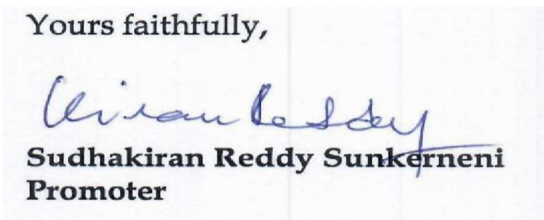 Yours faithfully,
Kiran Reddy
Sudhakiran Reddy Sunkerneni
Promoter